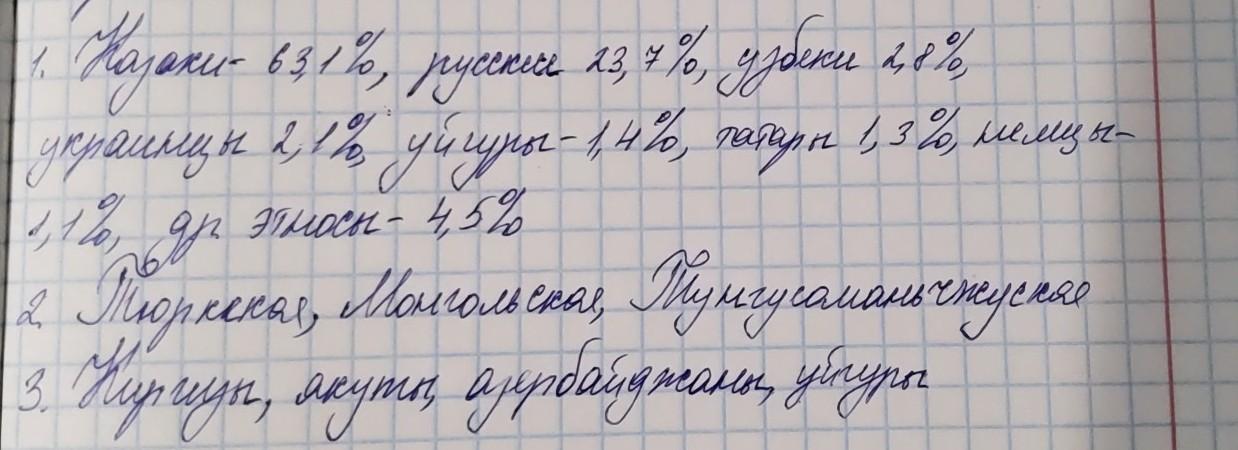 1. Казахи- 63,1%, русские 23,7%, узбеки 2,8%,
украинцы 2,1%, уйгуры- 1,4%, татары 1,3%, немцы-
1,1%, др. этносы- 4,5%
2. Тюркская, Монгольская, Тунгусоманьчжуская
3. Киргизы, якуты, азербайджаны, уйгуры